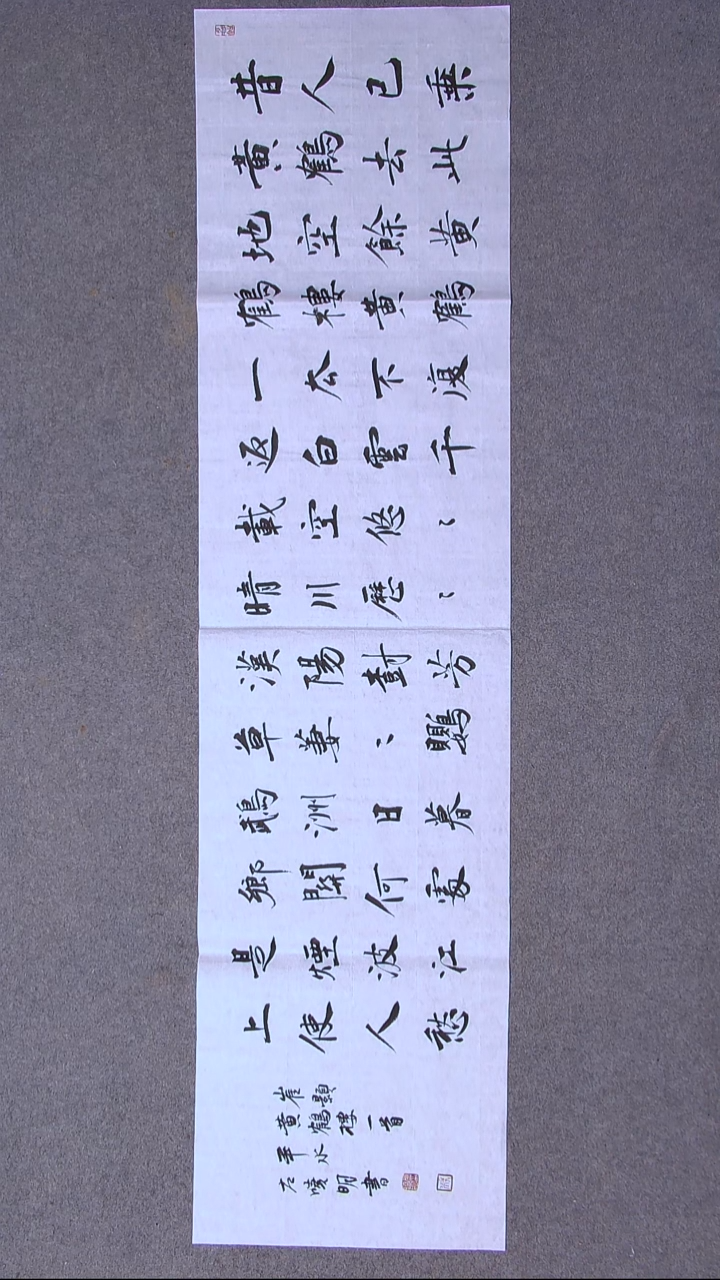 昔人已乘
黃鶴去此
地空餘黃
鶴樓黃鶴
一去不復
返白雲千
載空悠〻
晴川歷〻
漢陽樹芳
草萋〻鸚
鵡洲日暮
鄉關何處
是煙波江
上使人愁
崔顥
黃鶴樓一首
水
明書